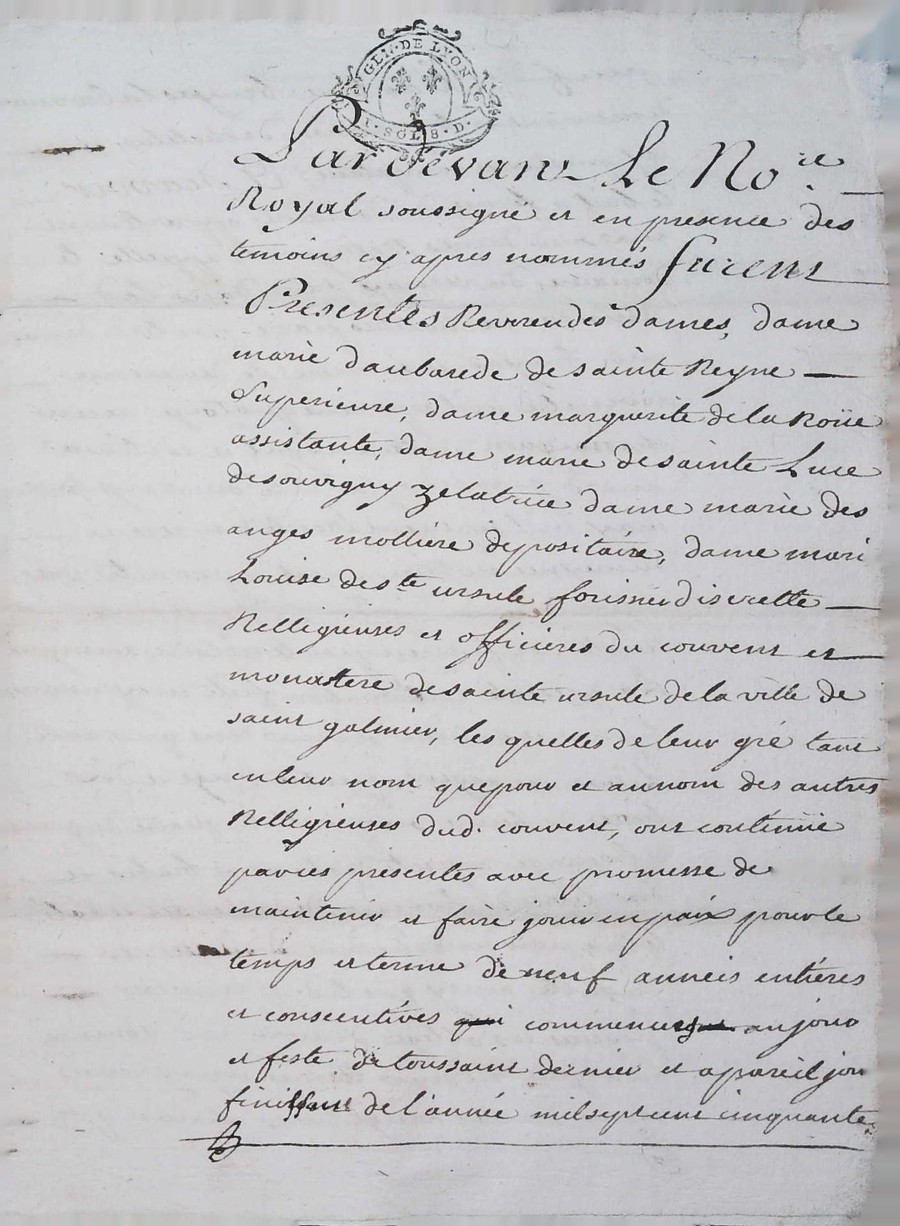 GEN. DE LYON
SOLS. D.
Par devant Le No.re
Royal soussigné et en presence des
temoins cy apres nommés furent
Presentes Reverendes dames, dame
marie daubarede de sainte Reyne
Superieure, dame marguerite de la Roüe
assistante, dame marie de sainte Luce
de souvigny zelatrice dame marie des
anges molliere depositaire, dame mari
Louise de ste ursule forisner discrette
Relligieuses et officieres du couvent et
monastere de sainte ursule de la ville de
saint galmier, les quelles de leur gré tant
en leur nom que pour et au nom des autres
Relligieuses dud. couvent, ont continüé
par ces presentes avec promesse de
maintenir et faire jouir en paix pour le
temps et terme de neuf années entieres
et consecutives qui commencu au jour
et feste de toussaint dernier et a pareil jou
finissant de l'année mil sept cent cinquante